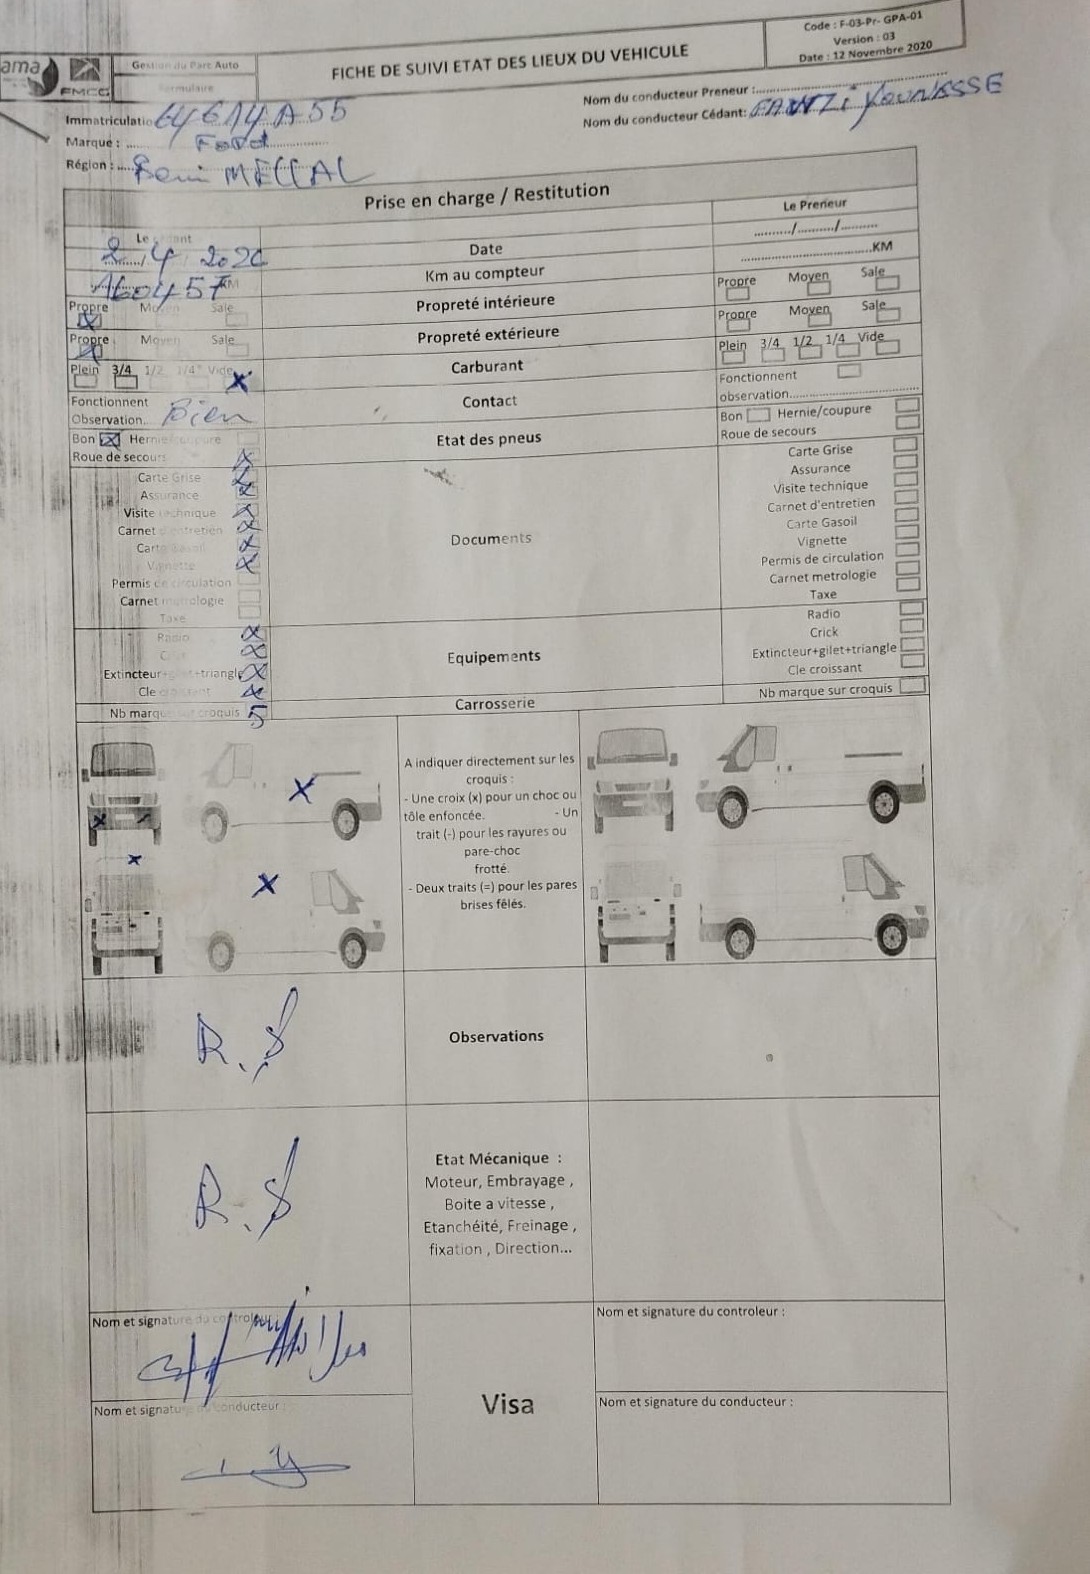 ama
FMCG
Gestion du Parc Auto
Formulaire
FICHE DE SUIVI ETAT DES LIEUX DU VEHICULE
Code : F-03-Pr- GPA-01
Version : 03
Date : 12 Novembre 2020
Immatriculatio 64614 A 55
Marque : Ford
Région : Beni MELLAL
Nom du conducteur Preneur :
Nom du conducteur Cédant:
Prise en charge / Restitution
Le Cédant
Le Preneur
Date
........../........../..........
Km au compteur
KM
..............................KM
Propre Moyen Sale
Propreté intérieure
Propre Moyen Sale
Propre Moyen Sale
Propreté extérieure
Propre Moyen Sale
Plein 3/4 1/2 1/4 Vide
Carburant
Plein 3/4 1/2 1/4 Vide
Fonctionnent
Observation. Bien
Contact
Fonctionnent
observation..............................
Bon Hernie/coupure
Roue de secours
Etat des pneus
Bon Hernie/coupure
Roue de secours
Carte Grise
Assurance
Visite technique
Carnet d'entretien
Carte Gasoil
Vignette
Permis de circulation
Carnet metrologie
Taxe
Documents
Carte Grise
Assurance
Visite technique
Carnet d'entretien
Carte Gasoil
Vignette
Permis de circulation
Carnet metrologie
Taxe
Radio
Crick
Extincteur+gilet+triangle
Cle croissant
Equipements
Radio
Crick
Extincteur+gilet+triangle
Cle croissant
Nb marque sur croquis 5
Carrosserie
Nb marque sur croquis
A indiquer directement sur les
croquis :
- Une croix (x) pour un choc ou
tôle enfoncée. - Un
trait (-) pour les rayures ou
pare-choc
frotté.
- Deux traits (=) pour les pares
brises fêlés.
R.S
Observations
R.S
Etat Mécanique :
Moteur, Embrayage ,
Boite a vitesse ,
Etanchéité, Freinage ,
fixation , Direction...
Nom et signature du controleur :
Nom et signature du controleur :
Visa
Nom et signature du conducteur :
Nom et signature du conducteur :